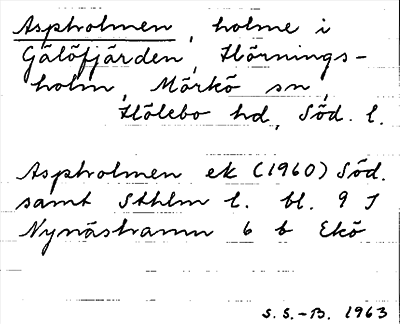 Aspholmen, holme i
Gälöfjärden, Hörnings-
holm, Mörkö sn,
Hölebo hd, Söd. l.
Aspholmen ek (1960) Söd.
samt Sthlm l. bl. 9 I
Nynäshamn 6 b Ekö
S.S.-B. 1963